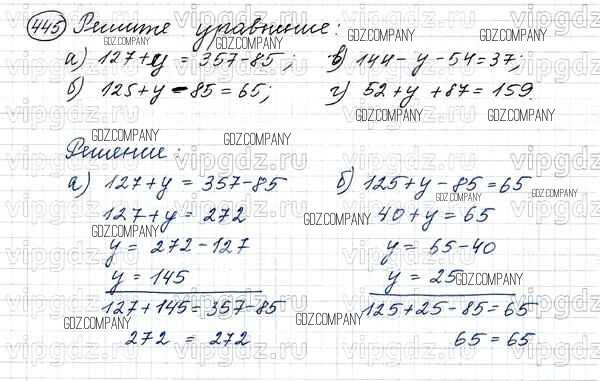 445 Решите уравнение:
а) 127+y = 357-85; в) 144-y-54=37;
б) 125+y-85=65; г) 52+y+87=159.
Решение:
а) 127+y = 357-85
127+y = 272
y = 272-127
y = 145
127+145=357-85
272 = 272
б) 125+y-85=65
40+y=65
y = 65-40
y = 25
125+25-85=65
65=65